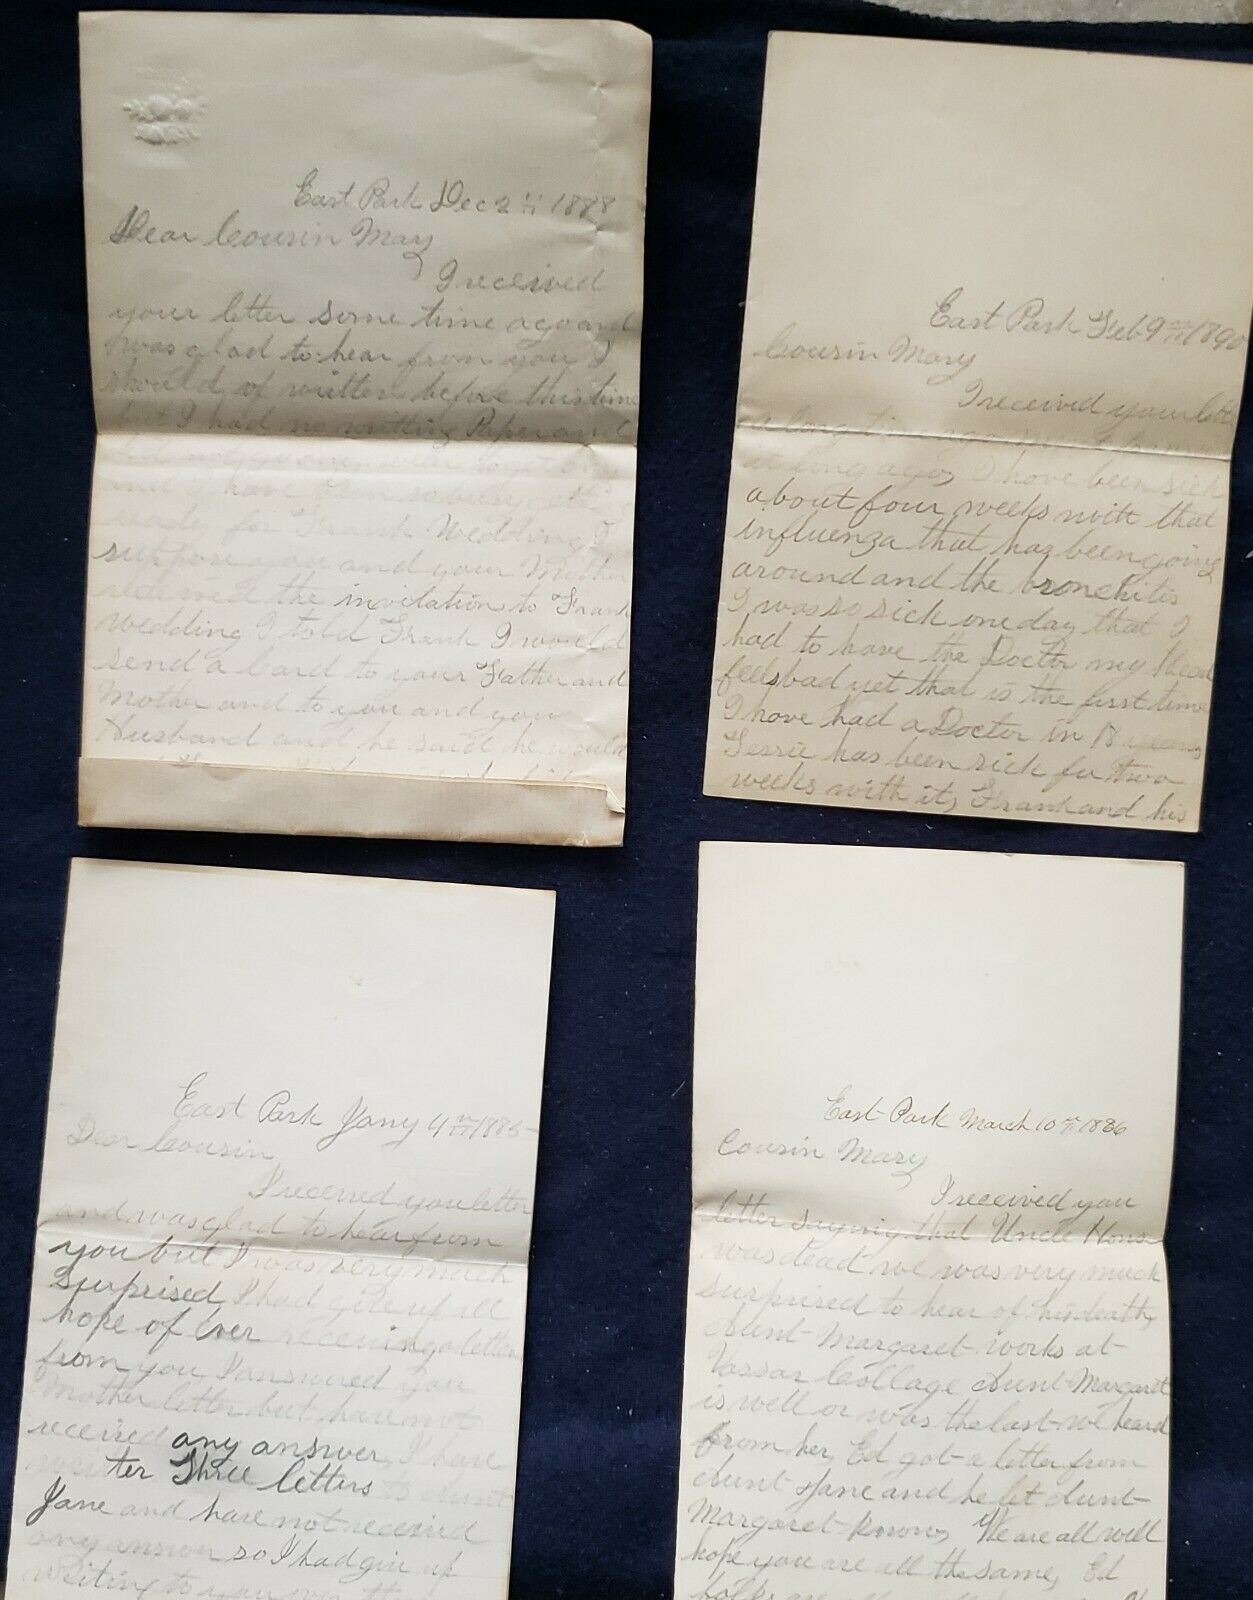 East Park Dec 2 1888
Dear Cousin Mary
I received
your letter some time ago and
was glad to hear from you I
should of written before this time
but I had no writting Paper and
did not go
and I have been so busy getting
ready for Frank Wedding I
suppose you and your Mother
received the invitation to Frank
wedding I told Frank I would
send a Card to your Father and
Mother and to you and your
Husband and he said he would
East Park Feb 9th 1890
Cousin Mary
I received your letter
a long time ago
it long ago, I have been sick
about four weeks with that
influenza that has been going
around and the bronchitis
I was so sick one day that I
had to have the Doctor my Head
feels bad yet that is the first time
I have had a Doctor in 18 years
Jessie has been sick for two
weeks with it, Frank and his
East Park Jany 4th 1885
Dear Cousin
I received you letter
and was glad to hear from
you but I was very much
surprised I had give up all
hope of ever receiving a letter
from you I answered you
Mother letter but have not
received any answer, I have
writter Three letters to Aunt
Jane and have not received
any answer so I had give up
writing to you
East Park March 10th 1886
Cousin Mary
I received you
letter saying that Uncle Hons
was dead we was very much
surprised to hear of his death,
Aunt Margaret works at
Vassar Collage Aunt Margaret
is well or was the last we heard
from her, Ed got a letter from
Aunt Jane and he let Aunt
Margaret know, We are all well
hope you are all the same, Ed
folks are all